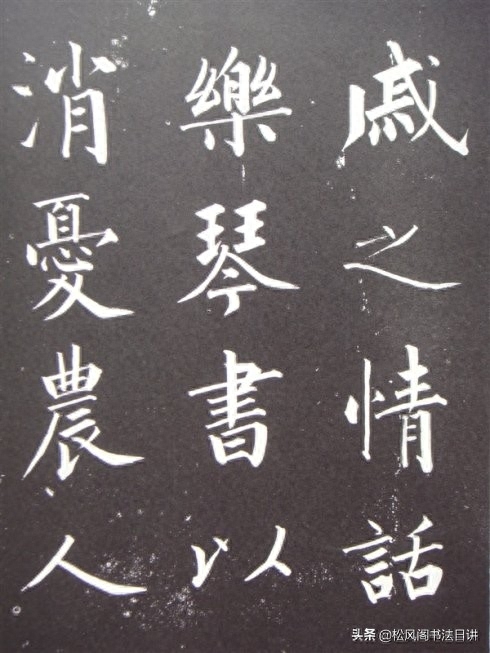 戚之情話
樂琴書以
消憂農人
头条 @松风阁书法日讲